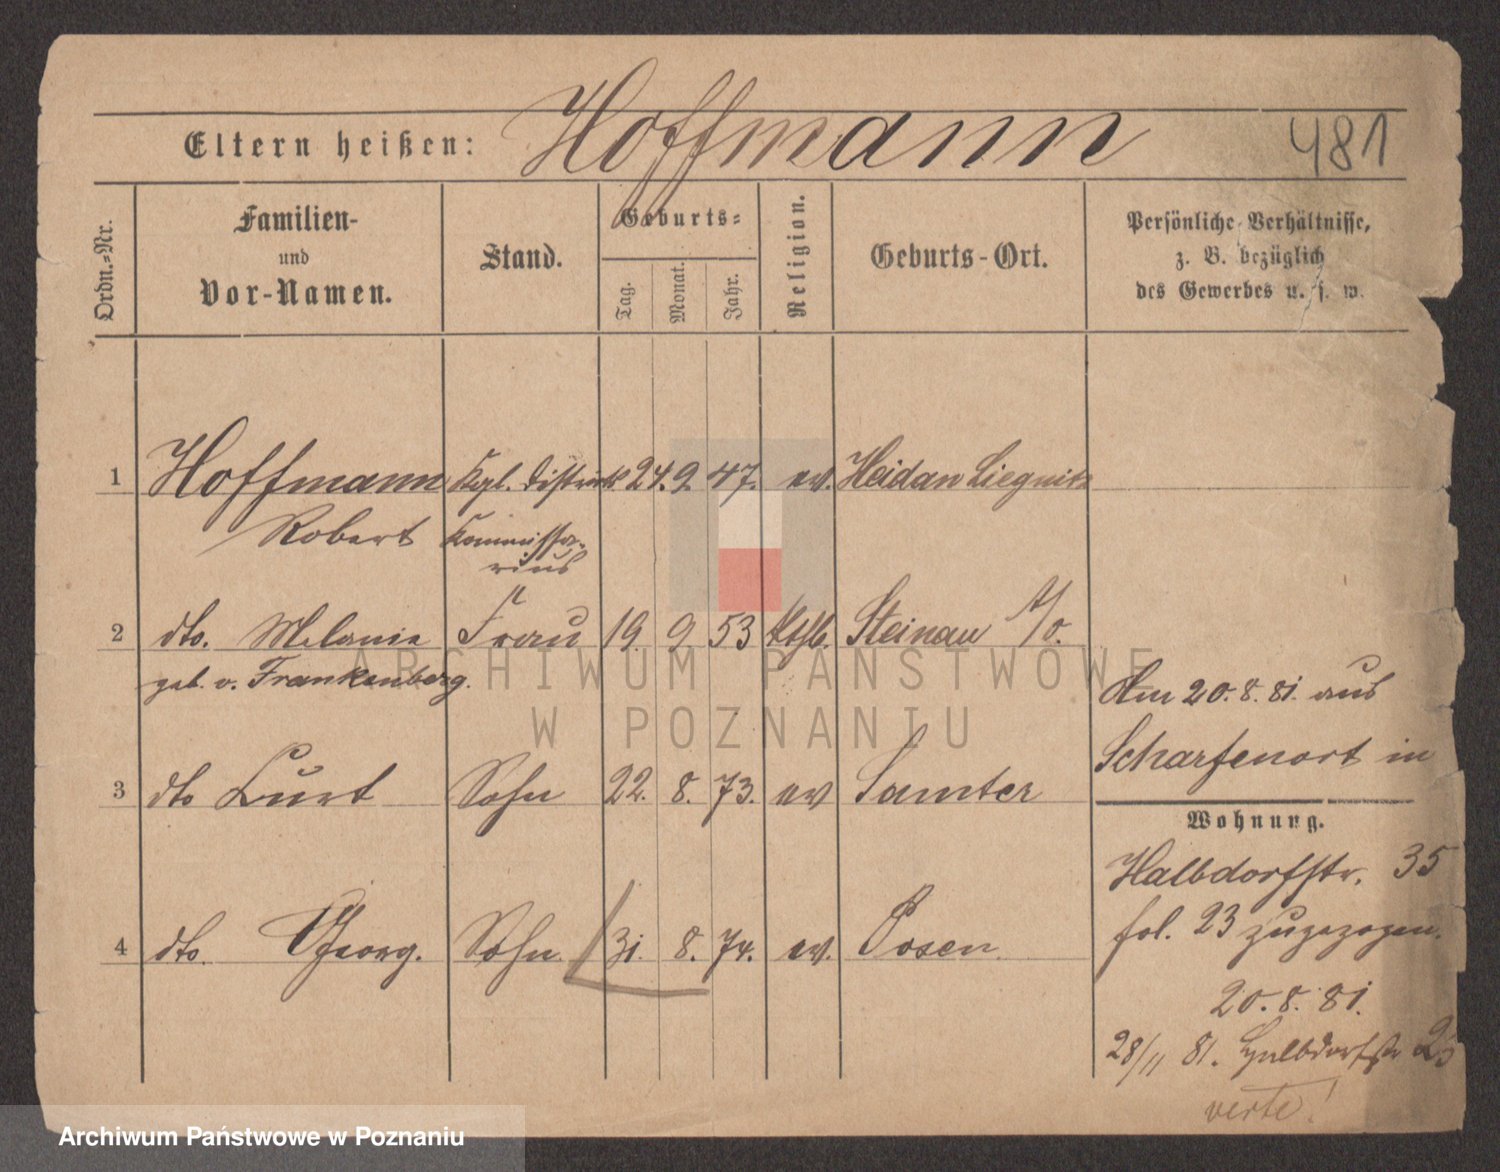 Eltern heißen: Hoffmann 481
Ordn.-Nr.
Familien-
und
Vor-Namen.
Stand.
Geburts-
Tag.
Monat.
Jahr.
Religion.
Geburts-Ort.
Persönliche Verhältnisse,
z. B. bezüglich
des Gewerbes u. s. w.
1 Hoffmann Kgl. Distrikts 24. 9. 47. ev. Heidau Liegnitz
Robert Kommissa-
rius
2 dto. Melanie Frau 19. 9. 53 kthl. Steinau A/O.
geb. v. Frankenberg.
ARCHIWUM PAŃSTWOWE
W POZNANIU
Am 20. 8. 81. aus
Scharfenort in
3 dto Curt Sohn 22. 8. 73. ev Samter
Wohnung.
Halbdorfstr. 35
fol. 23 zugezogen.
4 dto. Georg. Sohn 31. 8. 74. ev. Posen
20. 8. 81.
28/11 81. Halbdorfstr
verte!
Archiwum Państwowe w Poznaniu